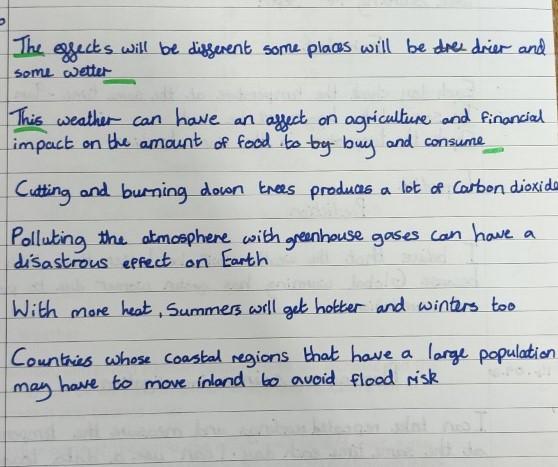 The effects will be different some places will be drier and
some wetter
This weather can have an affect on agriculture and financial
impact on the amount of food to by buy and consume
Cutting and burning down trees produces a lot of Carbon dioxide
Polluting the atmosphere with greenhouse gases can have a
disastrous effect on Earth
With more heat, Summers will get hotter and winters too
Countries whose coastal regions that have a large population
may have to move inland to avoid flood risk